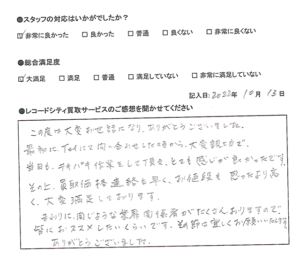 ●スタッフの対応はいかがでしたか？
☑非常に良かった □良かった □普通 □良くない □非常に良くない
●総合満足度
☑大満足 □満足 □普通 □満足していない □非常に満足していない
記入日：2022年 10月 13日
●レコードシティ買取サービスのご感想を聞かせてください
この度は大変お世話になり、ありがとうございました。
最初にTelにて問い合わせした時から、大変親切で、
当日も、テキパキ作業をして頂き、とても感じが良かったです。
その上、買取価格連絡も早く、お値段も思ったより高
く、大変満足しております。
まわりに同じような業界関係者がたくさんおりますので、
皆におススメしたいくらいです。 宜しくお願いいたします
ありがとうございました。